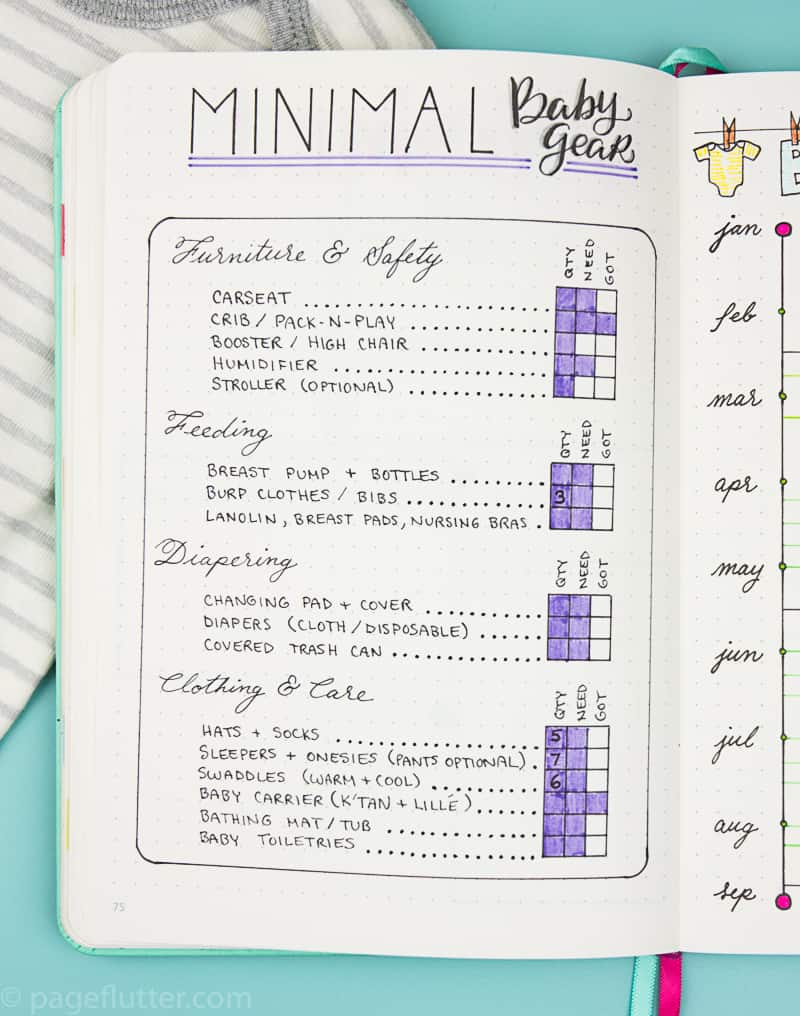 MINIMAL Baby Gear
Furniture & Safety
QTY NEED GOT
CARSEAT
CRIB / PACK-N-PLAY
BOOSTER / HIGH CHAIR
HUMIDIFIER
STROLLER (OPTIONAL)
Feeding
QTY NEED GOT
BREAST PUMP + BOTTLES
BURP CLOTHES / BIBS 3
LANOLIN, BREAST PADS, NURSING BRAS
Diapering
QTY NEED GOT
CHANGING PAD + COVER
DIAPERS (CLOTH/DISPOSABLE)
COVERED TRASH CAN
Clothing & Care
QTY NEED GOT
HATS + SOCKS 5
SLEEPERS + ONESIES (PANTS OPTIONAL) 7
SWADDLES (WARM + COOL) 6
BABY CARRIER (K'TAN + LILLÉ)
BATHING MAT/TUB
BABY TOILETRIES
75
jan
feb
mar
apr
may
jun
jul
aug
sep
© pageflutter.com